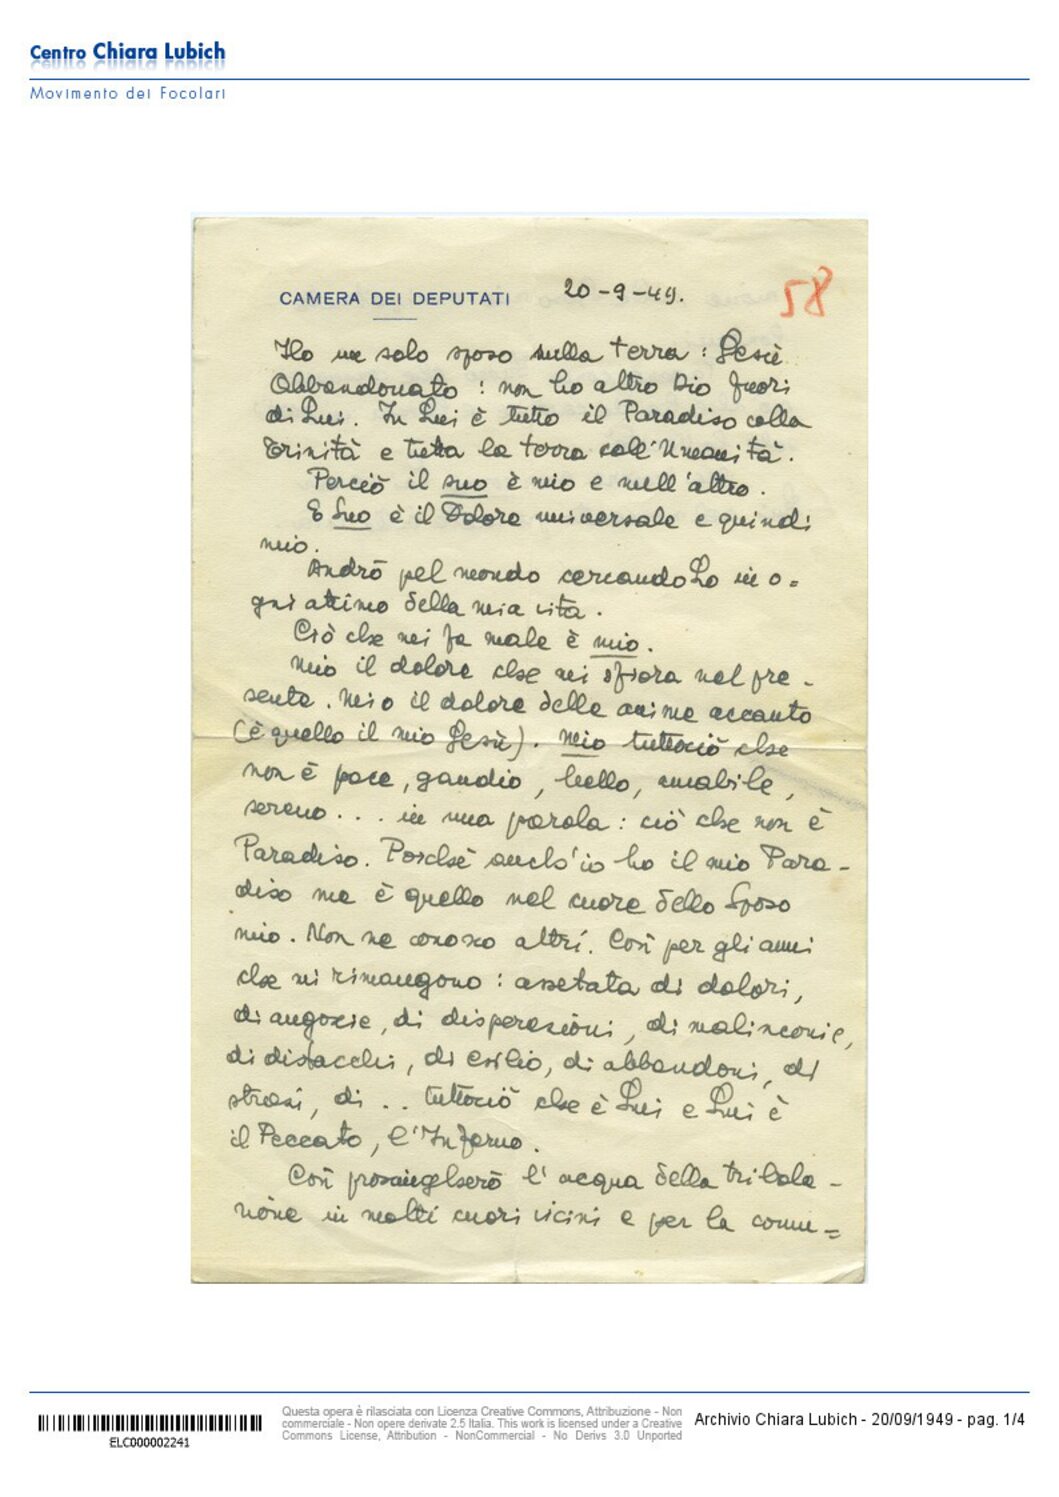 Centro Chiara Lubich
Movimento dei Focolari
CAMERA DEI DEPUTATI
20-9-49.
58
Ho un solo sposo sulla terra: Gesù
Abbandonato: non ho altro Dio fuori
di Lui. In Lui è tutto il Paradiso colla
Trinità e tutta la terra coll'Umanità.
Perciò il suo è mio e null'altro.
E Suo è il Dolore universale e quindi
mio.
Andrò pel mondo cercandoLo in o=
gni attimo della mia vita.
Ciò che mi fa male è mio.
Mio il dolore che mi sfiora nel pre-
sente. Mio il dolore delle anime accanto
(è quello il mio Gesù). Mio tuttociò che
non è pace, gaudio, bello, amabile,
sereno... in una parola: ciò che non è
Paradiso. Poiché anch'io ho il mio Para-
diso ma è quello nel cuore dello Sposo
mio. Non ne conosco altri. Così per gli anni
che mi rimangono: assetata di dolori,
di angosce, di disperazioni, di malinconie,
di distacchi, di esilio, di abbandoni, di
strazi, di .. tuttociò che è Lui e Lui è
il Peccato, l'Inferno.
Così prosciugherò l'acqua della tribola-
zione in molti cuori vicini e per la comu=
ELC000002241
Questa opera è rilasciata con Licenza Creative Commons, Attribuzione - Non
commerciale - Non opere derivate 2.5 Italia. This work is licensed under a Creative
Commons License, Attribution - NonCommercial - No Derivs 3.0 Unported
Archivio Chiara Lubich - 20/09/1949 - pag. 1/4